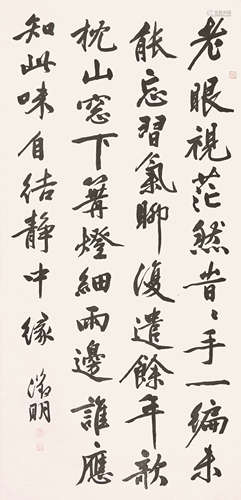 老眼視茫然旹〻手一編未
能忘習氣聊復遣餘年欹
枕山窓下篝燈細雨邊誰應
知此味自結靜中緣